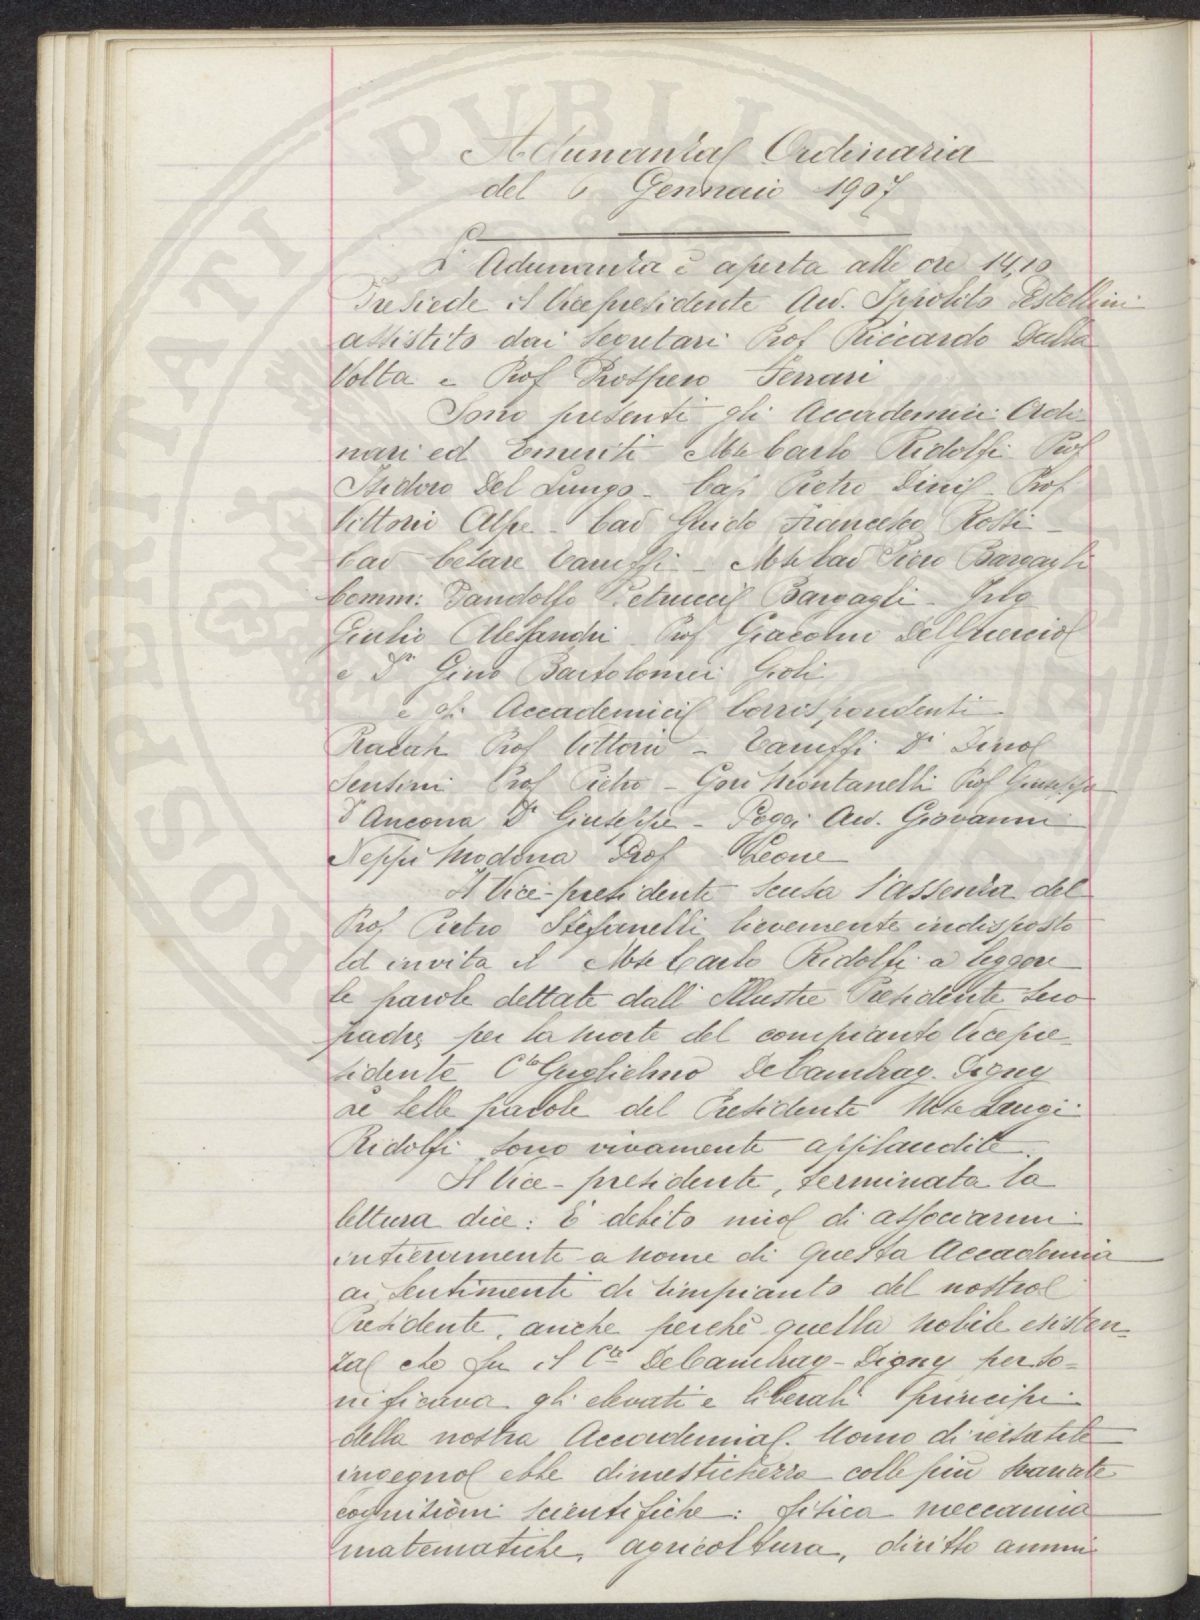 Adunanza Ordinaria
del 6 Gennaio 1907
L'Adunanza è aperta alle ore 14,10
Presiede il Vicepresidente Avv. Ippolito Pestellini
assistito dai Segretari Prof Riccardo Dalla
Volta e Prof Prospero Ferrari
Sono presenti gli Accademici Ordi
nari ed Emeriti Mse Carlo Ridolfi Prof
Isidoro Del Lungo - Cap Pietro Dini - Prof
Vittorio Alpe - Cav Guido Francesco Rossi -
Cav Cesare Taruffi - Mse Cav Piero Bargagli
Comm: Pandolfo Petrucci Bargagli - Ing
Giulio Alessandri Prof Giacomo Del Guercio
e Dr Gino Bartolomei Gioli
e gli Accademici Corrispondenti
Racah Prof Vittorio - Taruffi Dr Dino
Sensini Prof Pietro - Gori Montanelli Prof Giuseppe
D'Ancona Dr Giuseppe - Poggi Avv. Giovanni
Neppi Modona Prof Leone
Il Vice-presidente scusa l'assenza del
Prof Pietro Stefanelli lievemente indisposto
ed invita il Mse Carlo Ridolfi a leggere
le parole dettate dall'Illustre Presidente suo
padre, per la morte del compianto Vicepre-
sidente Cte Guglielmo De Cambray-Digny
belle parole del Presidente Mse Luigi
Ridolfi sono vivamente applaudite.
Il Vice-presidente, terminata la
lettura dice: È debito mio di associarmi
intieramente a nome di questa Accademia
ai sentimenti di rimpianto del nostro
Presidente, anche perchè quella nobile esisten=
za che fu il Cte De Cambray-Digny perso=
nificava gli elevati e liberali principi
della nostra Accademia. Uomo di versatile
ingegno ebbe dimestichezza colle più svariate
cognizioni scientifiche: fisica meccanica
matematiche, agricoltura, diritto ammi